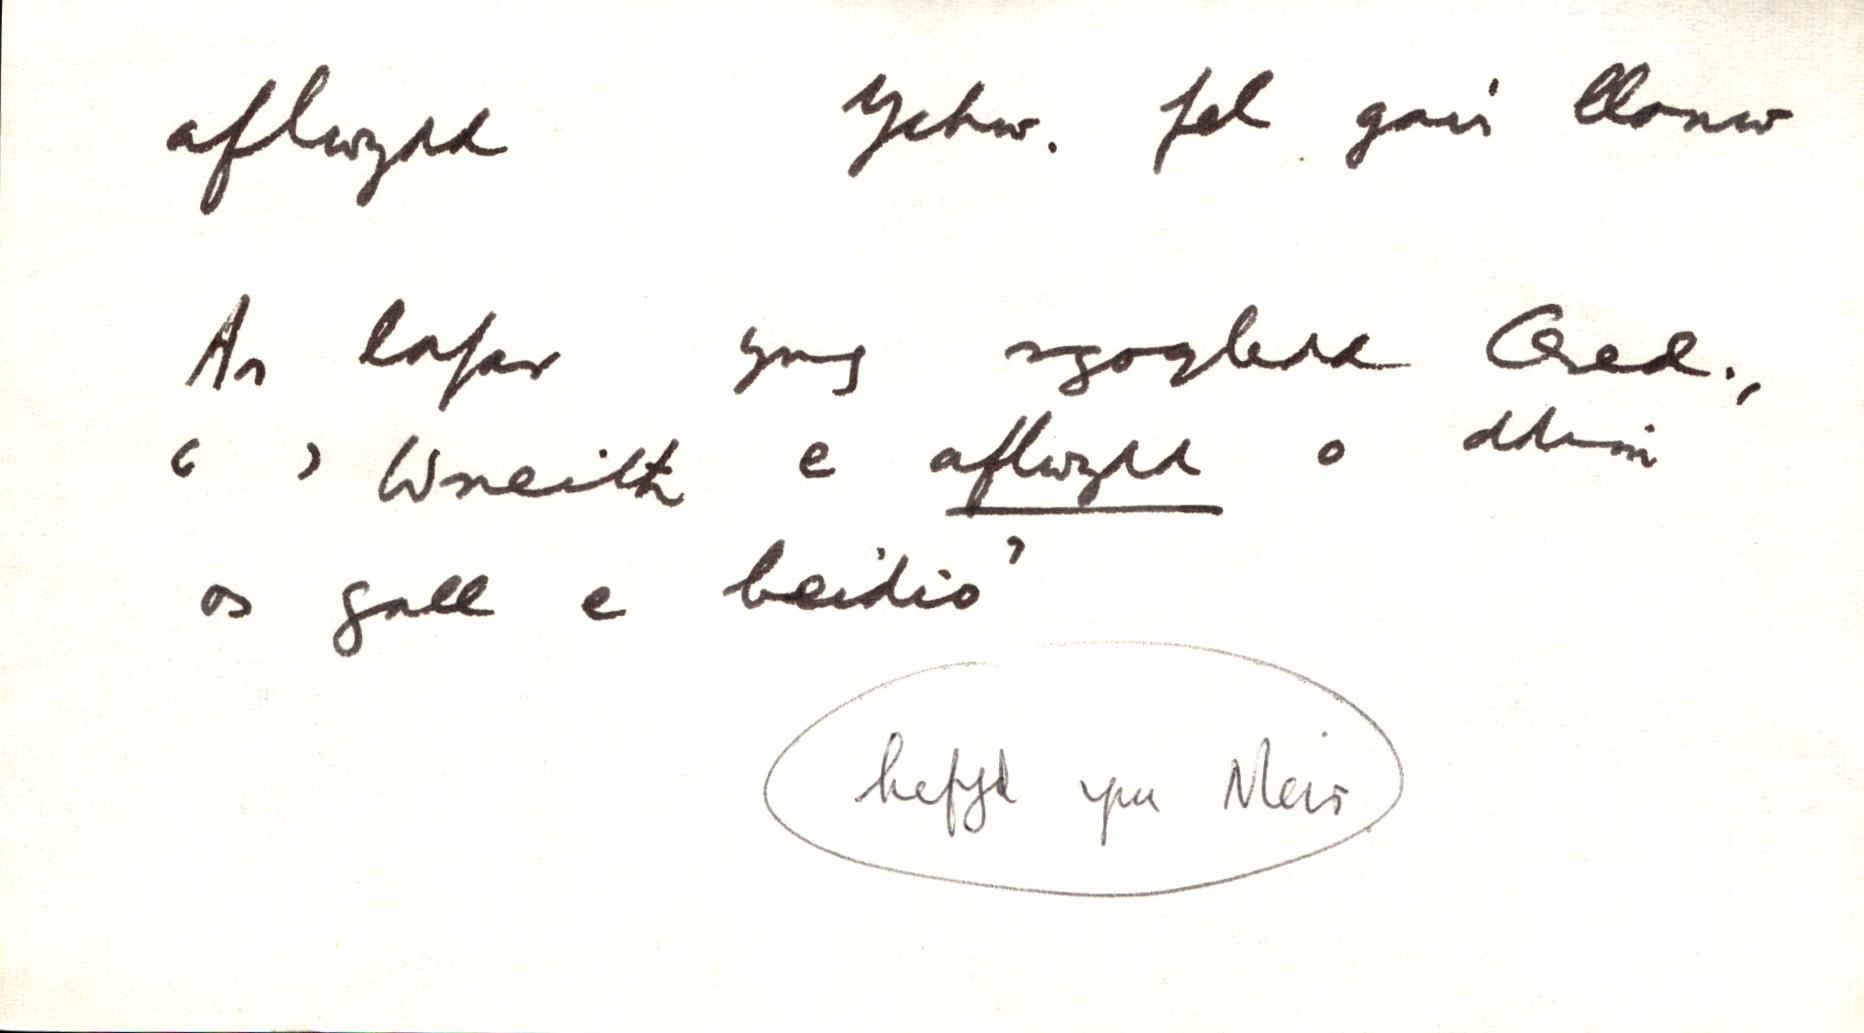 aflwydd Ychw. fel gair llanw
Ar lafar yng ngogledd Cered.,
‘ ’Wneith e aflwydd o ddim
os gall e beidio’
hefyd ym Meir